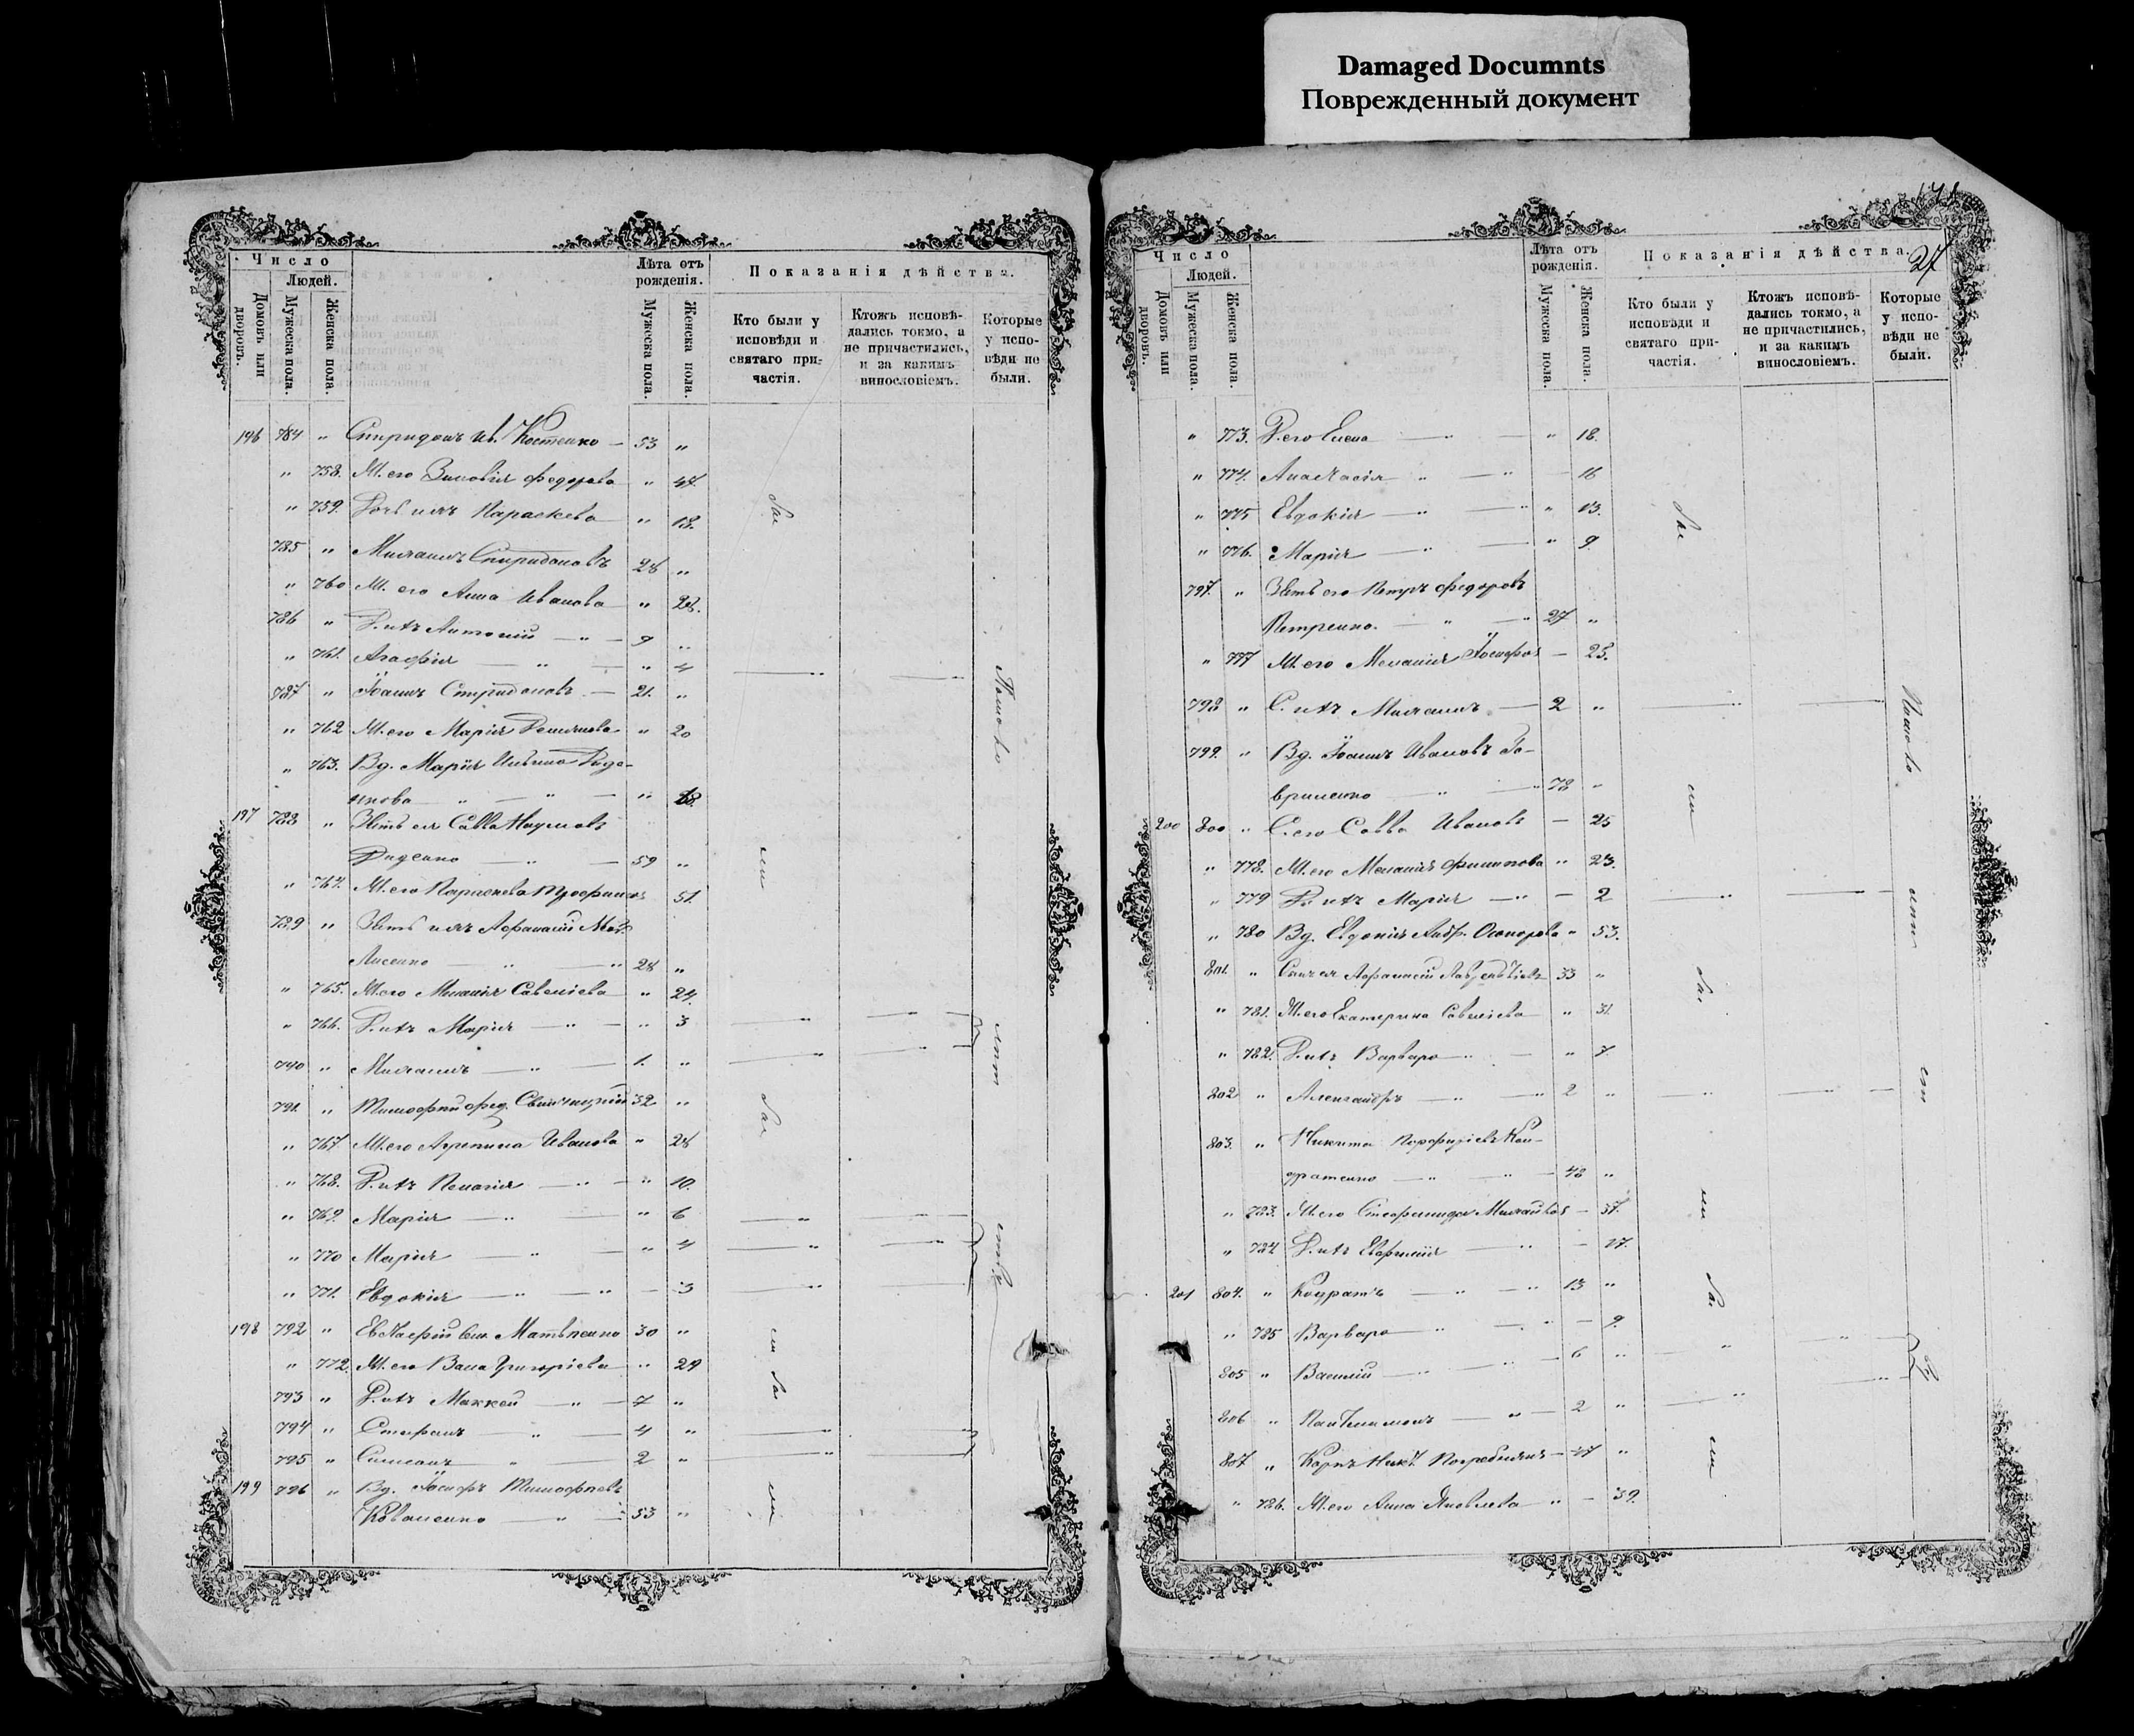 Damaged Documnts
Поврежденный документ
Число
Людей.
Домовъ или дворовъ.
Мужеска пола.
Женска пола.
Лѣта отъ рожденія.
Мужеска пола.
Женска пола.
Показанія дѣйства.
Кто были у исповѣди и святаго причастія.
Ктожъ исповѣдались токмо, а не причастились, и за какимъ винословіемъ.
Которые у исповѣди не были.
196 784 " Спиридонъ Ив. Костенко — 53 "
" 758. Ж. его Зиновія Федорова " 47.
" 759. Дочь ихъ Параскева " 18.
785 " Михаилъ Спиридоновъ 28 "
" 760 Ж. его Анна Иванова " 28.
786 " Д. ихъ Антоній — " — 9 "
" 761. Агафія — " — " 4
787 " Іоаннъ Спиридоновъ — 21. "
" 762 Ж. его Марія " 20
" 763. Вд. Марія
" — " — "
197 788 " Зять ея Савва Наумовъ
— " — 59 "
" 764. Ж. его Параскева 51.
789 " Зять ихъ Афанасій
Лисенко — " — " 28 "
" 765. Ж. его Меланія Савеліева " 24.
" 766. Д. ихъ Марія — " — " 3
790 " Михаилъ — " — 1. "
791. " Тимофей Фед. 32 "
" 767 Ж. его Агрепина Иванова " 28
" 768. Д. ихъ Пелагія — " — " 10.
" 769. Марія — " — " 6
" 770 Марія — " — " 4
" 771. Евдокія — " — " — 3
198 792 " Евстафій Матвіенко 30 "
" 772. Ж. его Васса Григоріева " 29
793 " Д. ихъ Моккей — " — 7 "
794 " Стефанъ — " — 4 "
795 " Симеонъ " — 2 "
199 796 " Вд. Іосифъ Тимофеевъ
Коваленко — " — 53 "
27
Число
Людей.
Домовъ или дворовъ.
Мужеска пола.
Женска пола.
Лѣта отъ рожденія.
Мужеска пола.
Женска пола.
Показанія дѣйства.
Кто были у исповѣди и святаго причастія.
Ктожъ исповѣдались токмо, а не причастились, и за какимъ винословіемъ.
Которые у исповѣди не были.
" 773. Д. его Елена — " — " 18.
" 774. Анастасія " — " — 16
" 775 Евдокія — " — " " 13.
" 776. Марія — " — " 9.
797. " Зять его Петръ Федоровъ
Петренко. — " — " 27 "
" 777 Ж. его Меланія Іосифов — 25.
798 " С. ихъ Михаилъ — 2 "
799. " Вд. Іоаннъ Ивановъ Га-
вриленко — " — " 78 "
200 800 " С. его Савва Ивановъ — 25
" 778. Ж. его Меланія Филипова " 23.
" 779 Д. ихъ Марія — " — 2
" 780 Вд. Евдокія Андр. " 53.
801. " Сынъ ея Афанасій Лаврентіевъ 33 "
" 781. Ж. его Екатерина Савеліева " 31.
" 782. Д. ихъ Варвара — " — " 7
802 " Александръ — " — " 2 "
803. " Никита Порфиріевъ Кон-
дратенко — " — " — 48 "
" 783. Ж. его Стефанида Михайлов — 37.
" 784 Д. ихъ Евфимія — " — 17.
201 804. " Кодратъ — " — " 13 "
" 785 Варвара — " — " — 9.
805 " Василій — " — " — 6 "
806 " Пантелимонъ — " — 2 "
807 " Карпъ Никит. — 47 "
" 786. Ж. его Анна Яковлева " — 39.